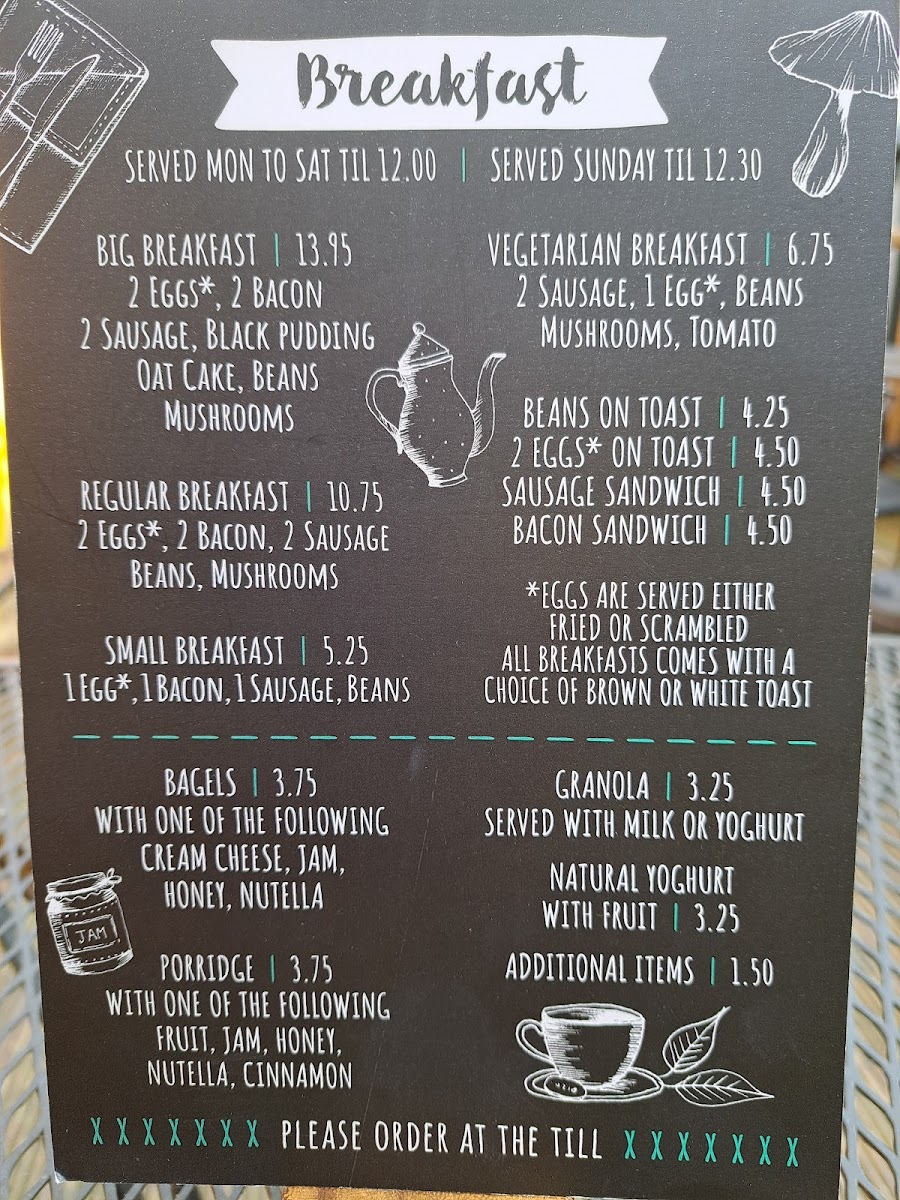 Breakfast
SERVED MON TO SAT TIL 12.00 | SERVED SUNDAY TIL 12.30
BIG BREAKFAST | 13.95
2 EGGS*, 2 BACON
2 SAUSAGE, BLACK PUDDING
OAT CAKE, BEANS
MUSHROOMS
REGULAR BREAKFAST | 10.75
2 EGGS*, 2 BACON, 2 SAUSAGE
BEANS, MUSHROOMS
SMALL BREAKFAST | 5.25
1 EGG*, 1 BACON, 1 SAUSAGE, BEANS
VEGETARIAN BREAKFAST | 6.75
2 SAUSAGE, 1 EGG*, BEANS
MUSHROOMS, TOMATO
BEANS ON TOAST | 4.25
2 EGGS* ON TOAST | 4.50
SAUSAGE SANDWICH | 4.50
BACON SANDWICH | 4.50
*EGGS ARE SERVED EITHER
FRIED OR SCRAMBLED
ALL BREAKFASTS COMES WITH A
CHOICE OF BROWN OR WHITE TOAST
BAGELS | 3.75
WITH ONE OF THE FOLLOWING
CREAM CHEESE, JAM,
HONEY, NUTELLA
JAM
PORRIDGE | 3.75
WITH ONE OF THE FOLLOWING
FRUIT, JAM, HONEY,
NUTELLA, CINNAMON
GRANOLA | 3.25
SERVED WITH MILK OR YOGHURT
NATURAL YOGHURT
WITH FRUIT | 3.25
ADDITIONAL ITEMS | 1.50
X X X X X X X PLEASE ORDER AT THE TILL X X X X X X X